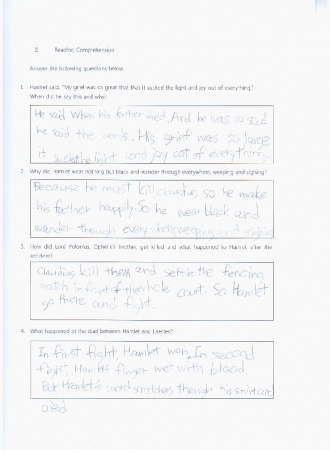 II. Reading Comprehension
Answer the following questions below
1. Hamlet said, "My grief was so great that that it sucked the light and joy out of everything."
When did he say this and why?
He said When his farther died. And he was so sad
he said the words. His grief was so large
it sucked the light and joy out of everything
2. Why did Hamlet wear nothing but black and wander through everywhere, weeping and sighing?
Because he must kill claudius so he make
his farther happily So he wear black and
wander through everywhere, weeping and sighing
3. How did Lord Polonius, Ophelia's brother, get killed and what happened to Hamlet after the
accident?
Claudius kill them and settle the fencing
match in front of the whole court. So Hamlet
go there and fight.
4. What happened at the duel between Hamlet and Laertes?
In first fight, Hamlet won. In second
fight, Hamlet's finger wet with blood.
But Hamlet's sword scratches through his shirt and
died